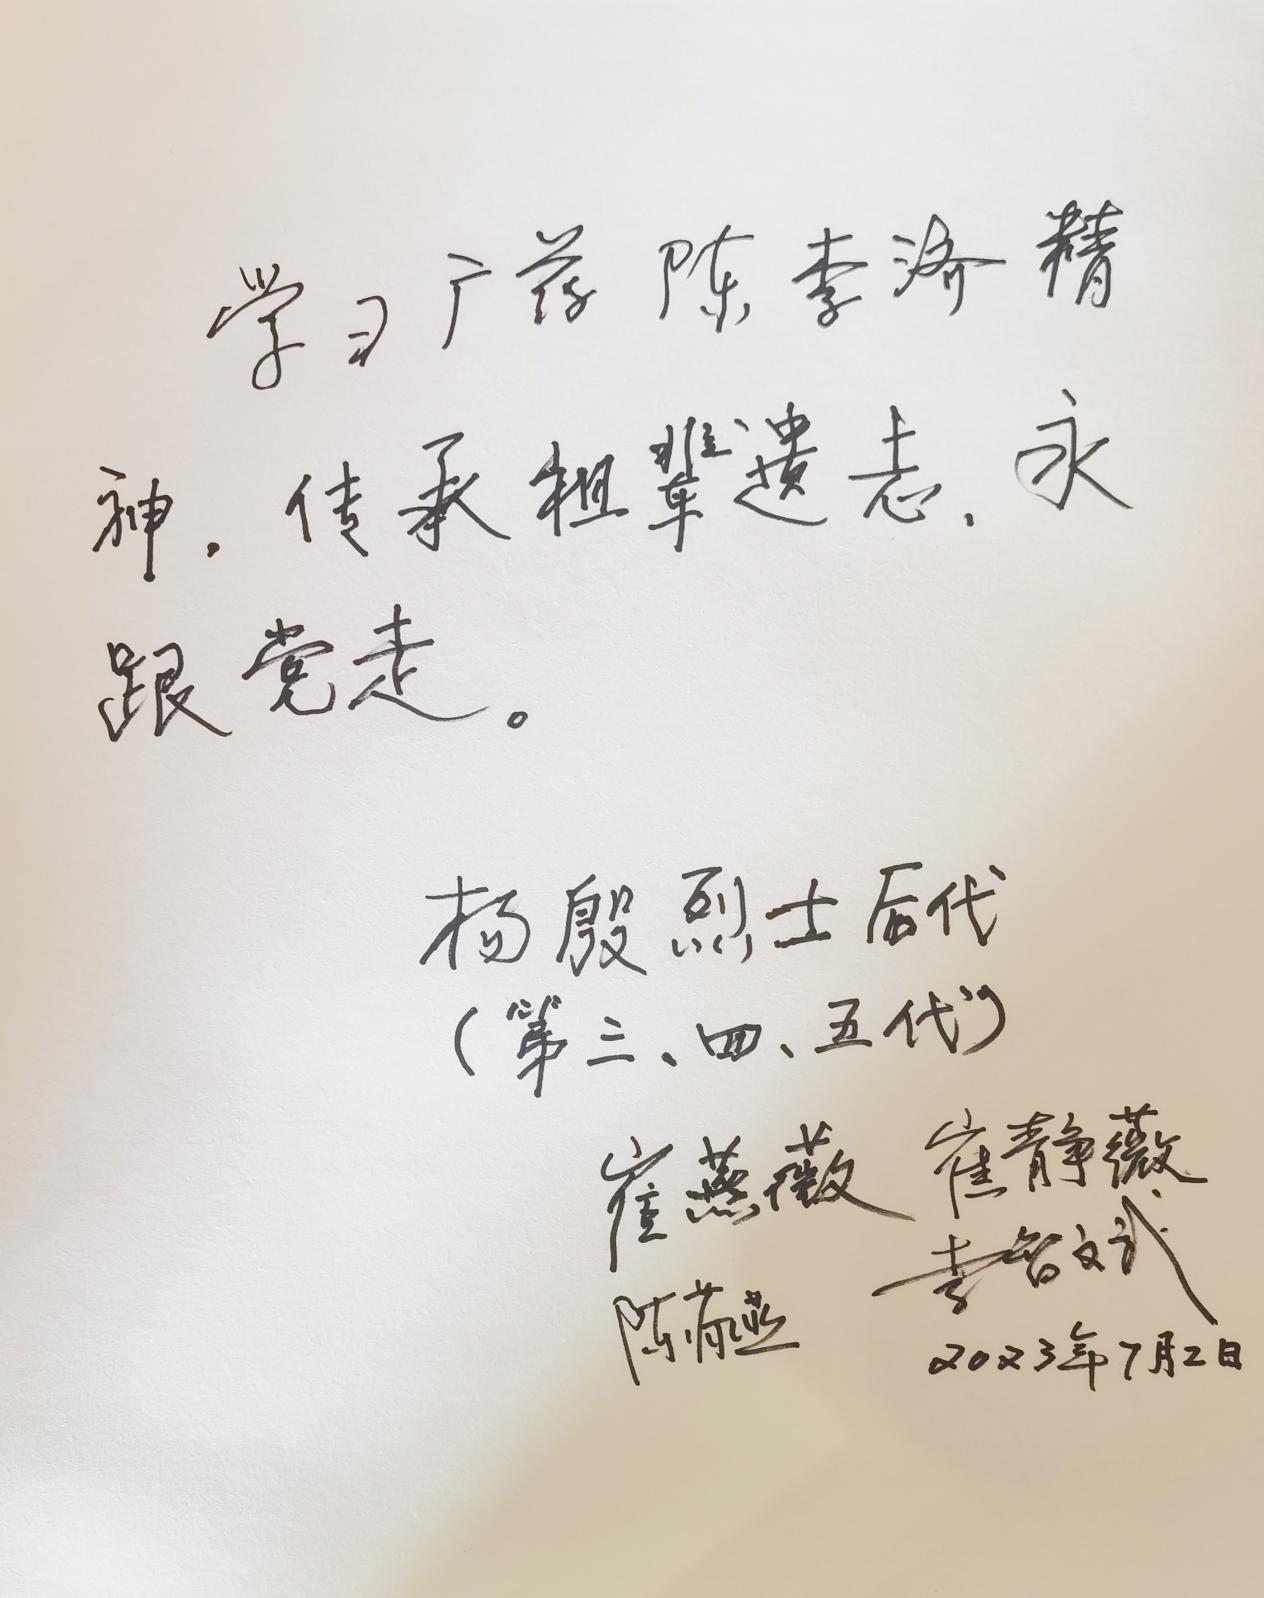 学习广药陈李济精
神，传承祖辈遗志，永
跟党走。
杨殷烈士后代
（第三、四、五代）
崔燕薇 崔静薇
陈 李智文武
2023年7月2日